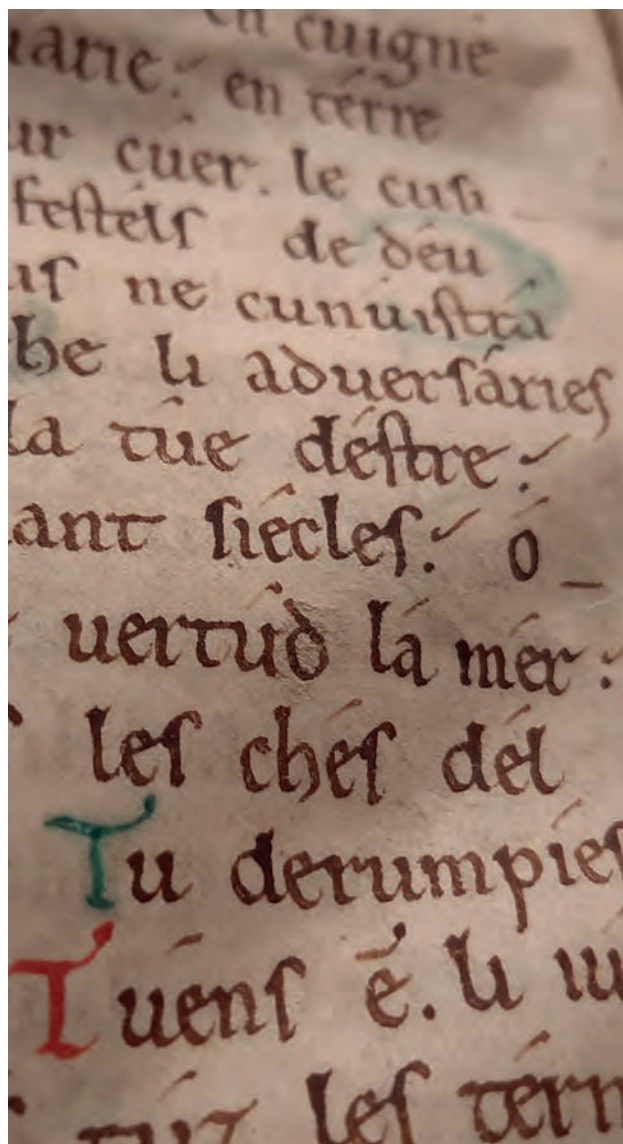 en cuigne
arie: en térre
ur cúer. le cusi
festeís de déu
us ne cunuistrá
he li aduersáries
la túe déstre:
ant siécles: ó
uertúd lá mér:
les chés dél
Tu derumpíes
Tuéns é. li
les térm